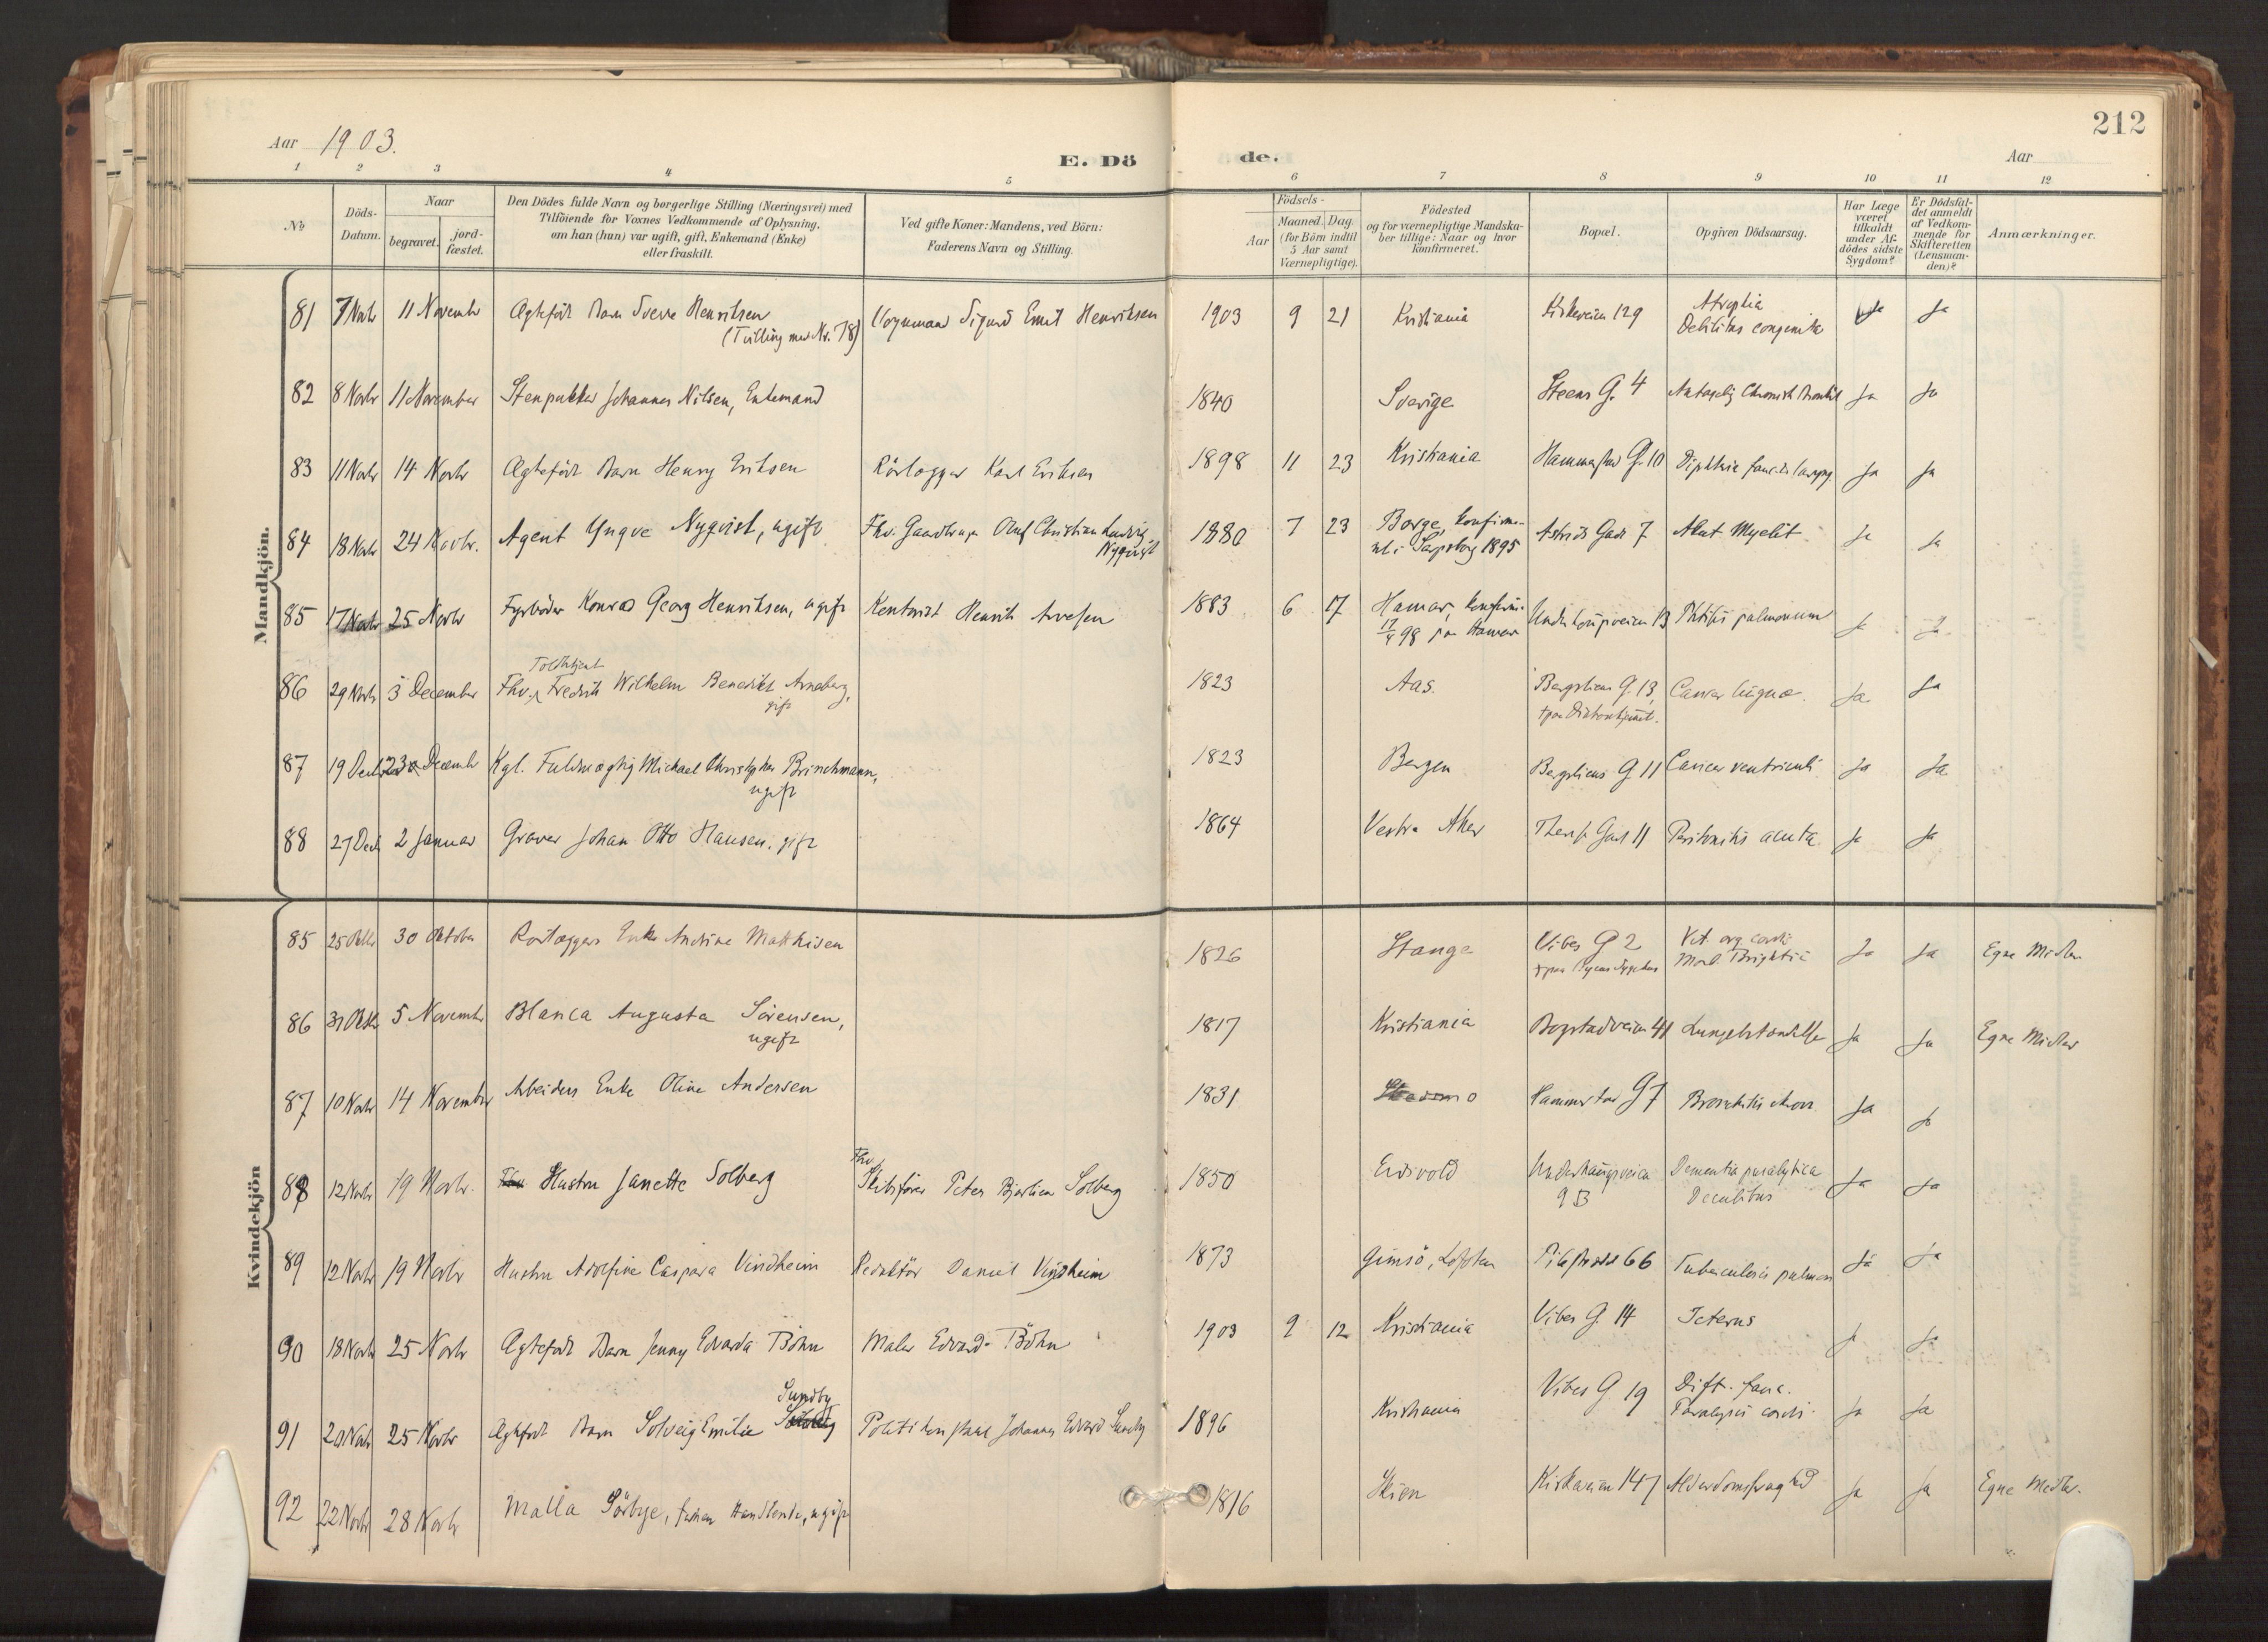 212
Aar 1903.
E. Dö
de.
Aar
1 2 3 4 5 6 7 8 9 10 11 12
№
Döds-
Datum.
Naar
begravet.
jord-
fæstet.
Den Dödes fulde Navn og borgerlige Stilling (Næringsvei) med
Tilföiende for Voxnes Vedkommende af Oplysning,
om han (hun) var ugift, gift, Enkemand (Enke)
eller fraskilt.
Ved gifte Koner: Mandens, ved Börn:
Faderens Navn og Stilling.
Födsels-
Aar
Maaned.
Dag.
(for Börn indtil
5 Aar samt
Værnepligtige).
Födested
og for værnepligtige Mandska-
ber tillige: Naar og hvor
konfirmeret.
Bopæl.
Opgiven Dödsaarsag.
Har Læge
været
tilkaldt
under Af-
dödes sidste
Sygdom?
Er Dödsfal-
det anmeldt
af Vedkom-
mende for
Skifteretten
(Lensman-
den)?
Anmærkninger.
Mandkjön.
81 7 Novbr 11 Novembr Ægtefödt Barn Sverre Henriksen Vognmand Sigurd Emil Henriksen 1903 9 21 Kristiania Kirkeveien 129 Atrophia Ja Ja
(Tvilling med Nr. 78) Debilitas congenita
82 8 Novbr 11 November Stenpukker Johannes Nilsen, Enkemand 1840 Sverige Steens G. 4 Chronisk Ja Ja
83 11 Novbr 14 Novbr Ægtefödt Barn Henry Eriksen Rörlægger Karl Eriksen 1898 11 23 Kristiania Hammerstad G. 10 Diphterie Ja Ja
84 18 Novbr 24 Novbr. Agent Yngve Nyqvist, ugift Fhv. Oluf Christian Ludvig 1880 7 23 Borge, konfirme- Astrids Gade 7 Akut Myelit Ja Ja
Nyqvist ret i Sarpsborg 1895
85 17 Novbr 25 Novbr Fyrböder Konrad Georg Henriksen, ugift Kontorist Henrik Arvesen 1883 6 17 Hamar, konfirm. Underhaugsveien 13 Phtisis pulmonum Ja Ja
98 paa Hamar
Toldbetjent
86 29 Novbr 5 December Fhv. Fredrik Wilhelm Benedikt Arneberg, 1823 Aas. Bergsliens G. 13, Cancer linguæ. Ja Ja
gift †paa Diakonhjemmet.
87 19 Decbr 23 Decembr Kgl. Fuldmægtig Michael Christopher Brinchmann, 1823 Bergen Bergsliens G 11 Cancer ventriculi Ja Ja
ugift
88 27 Decb 2 Januar Graver Johan Otto Hansen. gift 1864 Vestre Aker Theres Gade 11 Peritonitis acuta Ja Ja
Kvindekjön
85 25 Oktbr 30 Oktober Rörlæggers Enke Andrine Mathisen 1826 Stange Vibes G 2 Vit. org. cordis Ja Ja Egne Midler
Morb. Brightii
86 31 Oktbr 5 Novembr Blanca Augusta Sörensen, 1817 Kristiania Bogstadveien 41 Lungebetændelse Ja Ja Egne Midler
ugift
87 10 Novbr 14 November Arbeiders Enke Oline Andersen 1831 Hammerstad G 7 Bronchitis chron. Ja Ja
Fhv.
88 12 Novbr 19 Novbr. Hustru Janette Solberg Skibsförer Peter Bjerlien Solberg 1850 Eidsvold Underhaugsveien Dementia paralytica Ja Ja
9 B Decubitus
89 12 Novbr 19 Novbr Hustru Adolfine Caspara Vindheim Redaktör Daniel Vindheim 1873 Gimsö, Lofoten Pilestrædet 66 Tuberculosis pulmon Ja Ja
90 18 Novbr 25 Novbr Ægtefödt Barn Jenny Edvarda Böhn Maler Edvard Böhn 1903 9 12 Kristiania Vibes G. 14 Icterus Ja Ja
Sundby
91 20 Novbr 25 Novbr Ægtefödt Barn Solveig Emilie Politikonstabel Johannes Edvard Sundby 1896 Kristiania Vibes G 19 Dift. fauc. Ja Ja
Paralysis cordis.
92 22 Novbr 28 Novbr Malla Sörbye, forhen Handlende, ugift 1816 Skien Kirkeveien 147 Alderdomssvaghed Ja Ja Egne Midler.